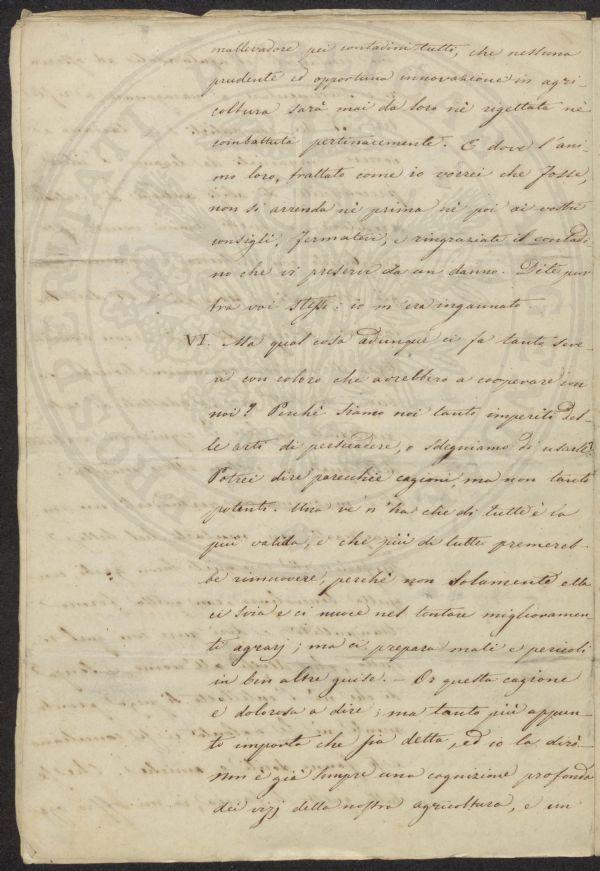 mallevadore pei contadini tutti, che nessuna
prudente ed opportuna innovazione in agri-
coltura sarà mai da loro nè rigettata nè
combattuta pertinacemente. E dove l'ani-
mo loro, trattato come io vorrei che fosse,
non si arrenda nè prima nè poi ai vostri
consigli, fermatevi, e ringraziate il contadi
no che vi preservi da un danno. Dite pur
tra voi stessi: io m'era ingannato.
VI. Ma qual cosa adunque ci fa tanto seve-
ri con coloro che avrebbero a cooperare con
noi? Perchè siamo noi tanto imperiti del-
le arti di persuadere, o sdegniamo di usarle?
Potrei dire parecchie cagioni, ma non tanto
potenti. Una ve n'ha che di tutte è la
più valida, e che più di tutte premereb-
be rimuovere, perchè non solamente ella
ci svia e ci nuoce nel tentare miglioramen-
ti agrarj; ma ci prepara mali e pericoli
in ben altre guise. — Or questa cagione
è dolorosa a dire; ma tanto più appun-
to importa che sia detta, ed io la dirò.
Non è già sempre una cognizione profonda
dei vizj della nostra agricoltura, e un